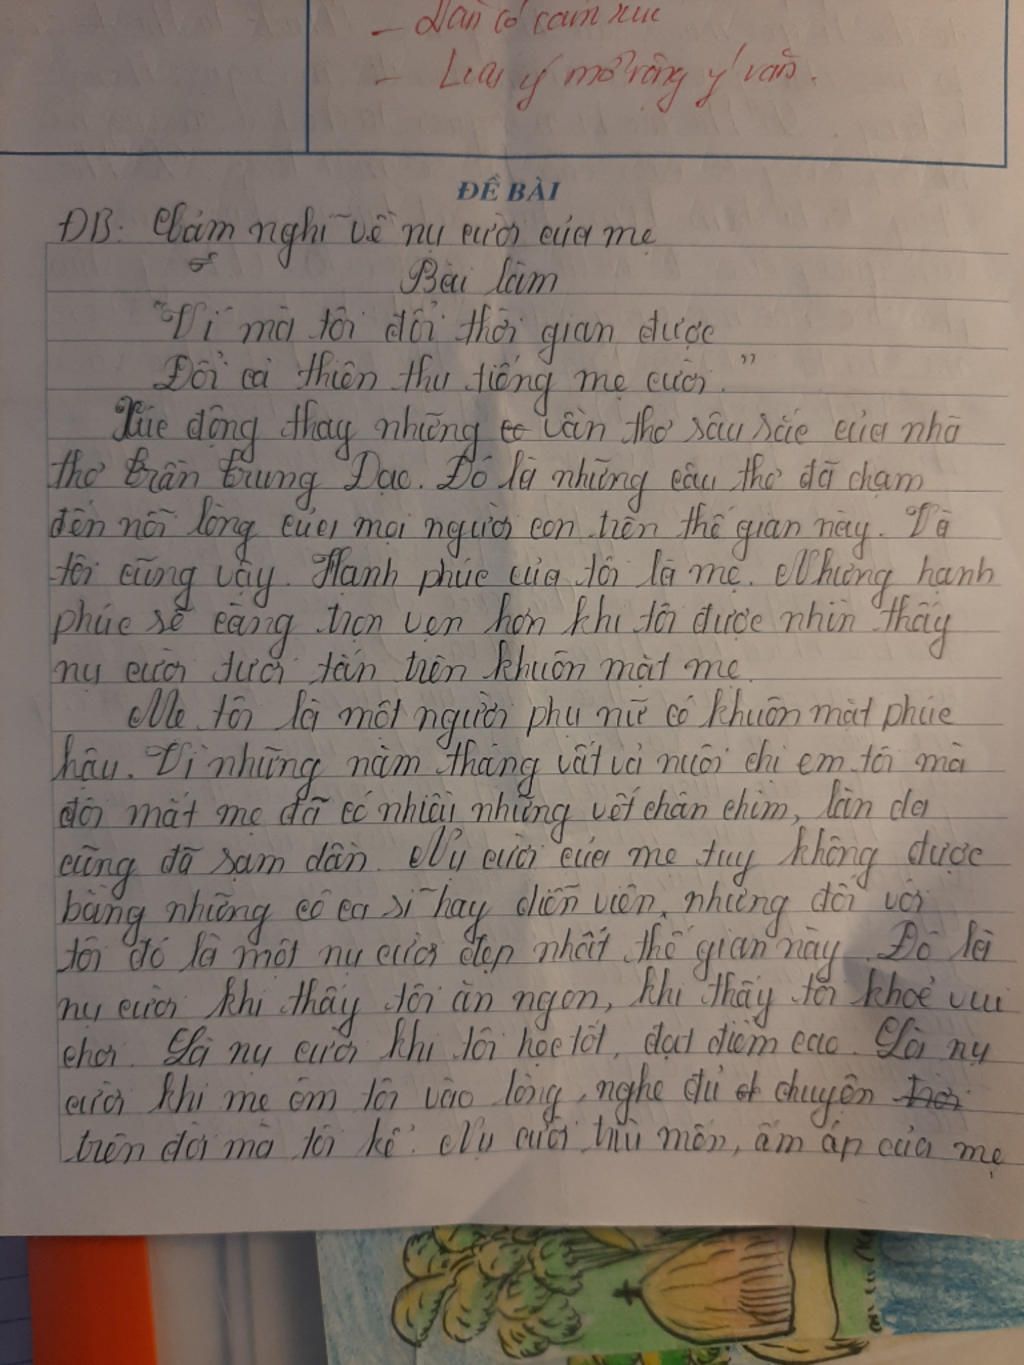 - Văn có cảm xúc
- Lưu ý mở rộng ý văn.
ĐỀ BÀI
ĐB: Cảm nghĩ về nụ cười của mẹ
Bài làm
"Ví mà tôi đổi thời gian được
Đổi cả thiên thu tiếng mẹ cười."
Xúc động thay những vần thơ sâu sắc của nhà
thơ Trần Trung Đạo. Đó là những câu thơ đã chạm
đến nỗi lòng của mọi người con trên thế gian này. Và
tôi cũng vậy. Hạnh phúc của tôi là mẹ. Nhưng hạnh
phúc sẽ càng trọn vẹn hơn khi tôi được nhìn thấy
nụ cười tươi tắn trên khuôn mặt mẹ.
Mẹ tôi là một người phụ nữ có khuôn mặt phúc
hậu. Vì những năm tháng vất vả nuôi chị em tôi mà
đôi mắt mẹ đã có nhiều những vết chân chim, làn da
cũng đã sạm dần. Nụ cười của mẹ tuy không được
bằng những cô ca sĩ hay diễn viên, nhưng đối với
tôi đó là một nụ cười đẹp nhất thế gian này. Đó là
nụ cười khi thấy tôi ăn ngon, khi thấy tôi khoẻ vui
chơi. Là nụ cười khi tôi học tốt, đạt điểm cao. Là nụ
cười khi mẹ ôm tôi vào lòng, nghe đủ chuyện
trên đời mà tôi kể. Nụ cười trìu mến, ấm áp của mẹ